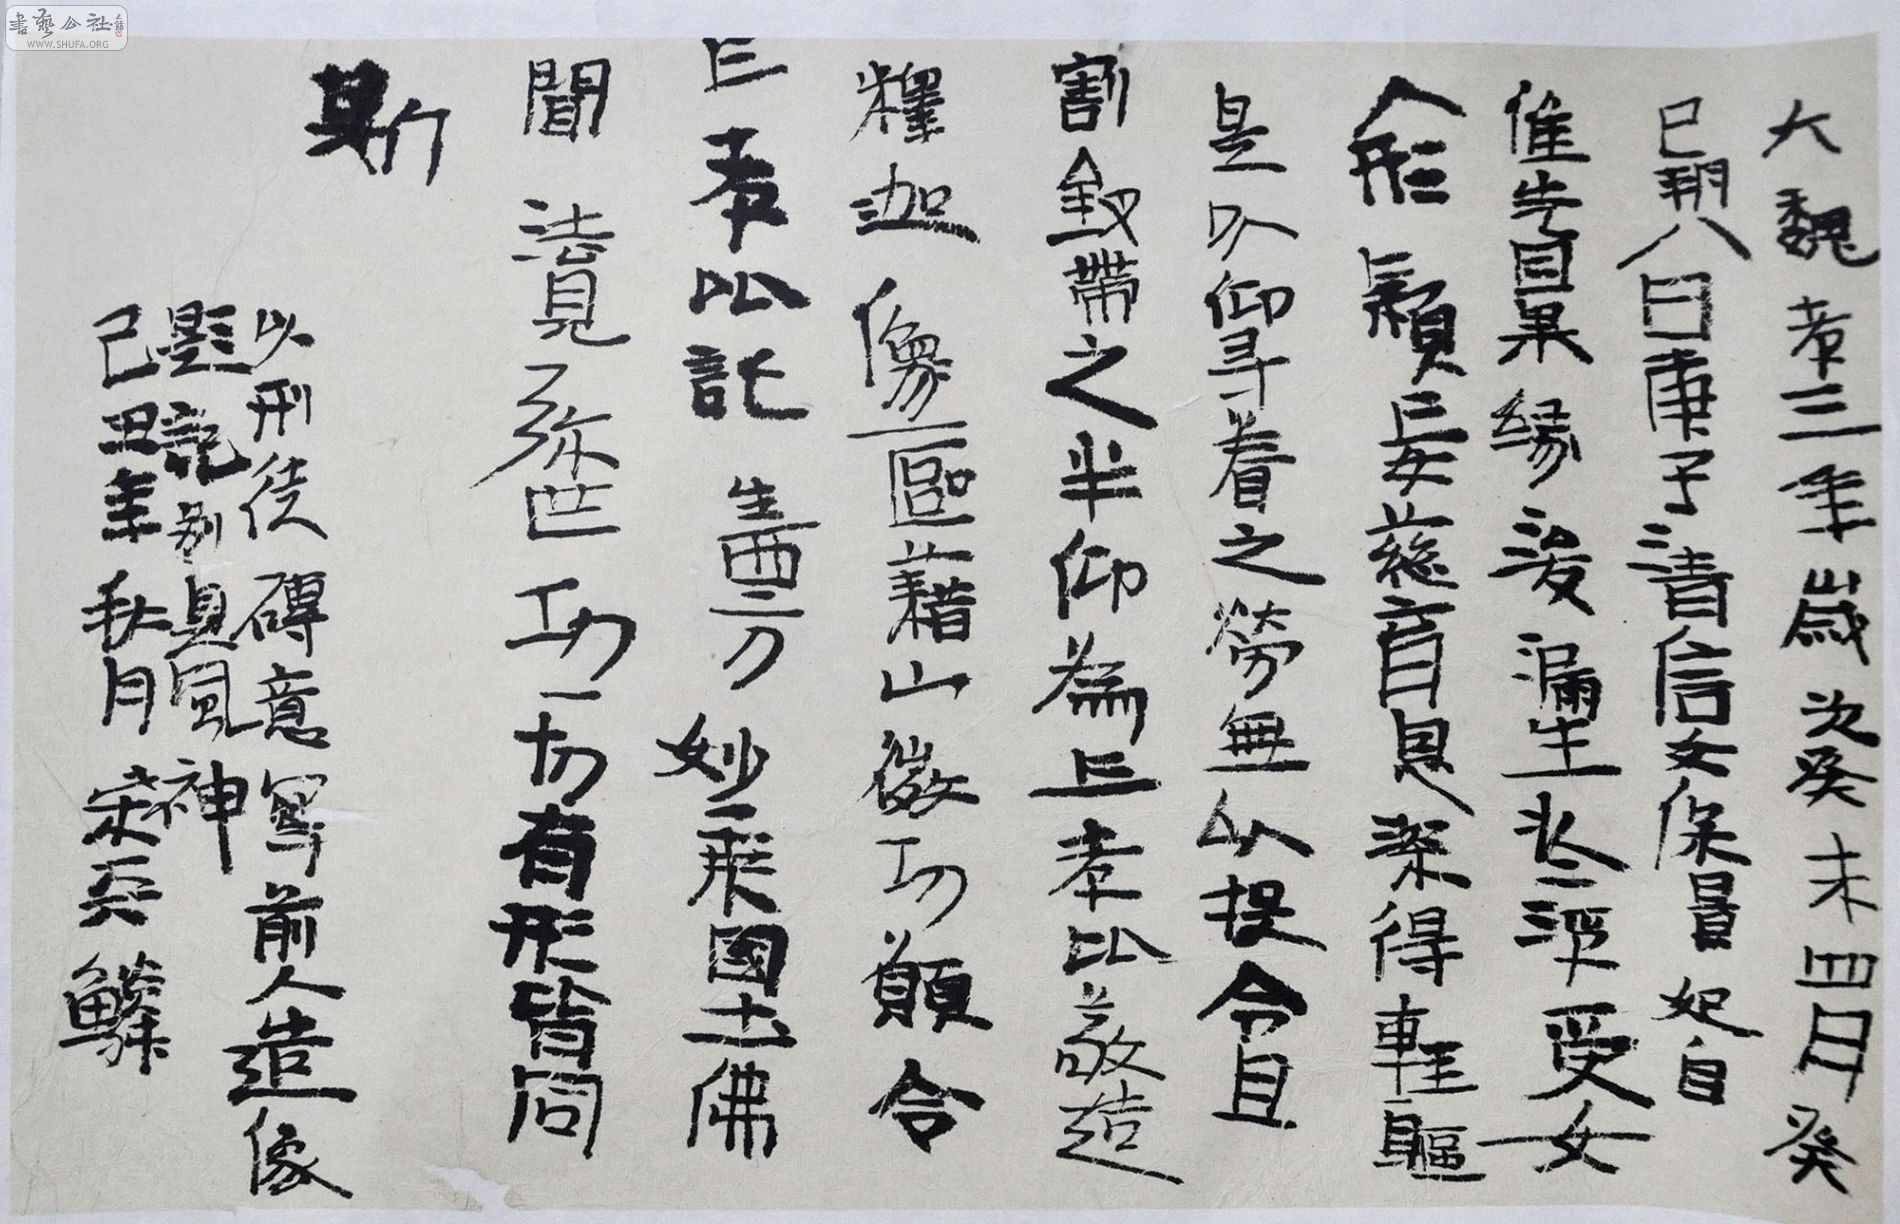 大魏孝三年歲次癸未四月癸
巳朔八日庚子清信女保晷妃自
惟先因果緣淺漏生水淨受女
人形賴亡女慈育恩深得輕軀
是以仰尋養之勞無以投令且
割釵帶之半仰為亡孝比敬造
釋迦像一區藉此微功願令
亡孝以託生西方妙乘國土佛
聞法見弥世功一切有形皆同
斯
以刑徒磚意寫前人造像
題記別具風神
己丑年秋月
書藝公社
WWW.SHUFA.ORG